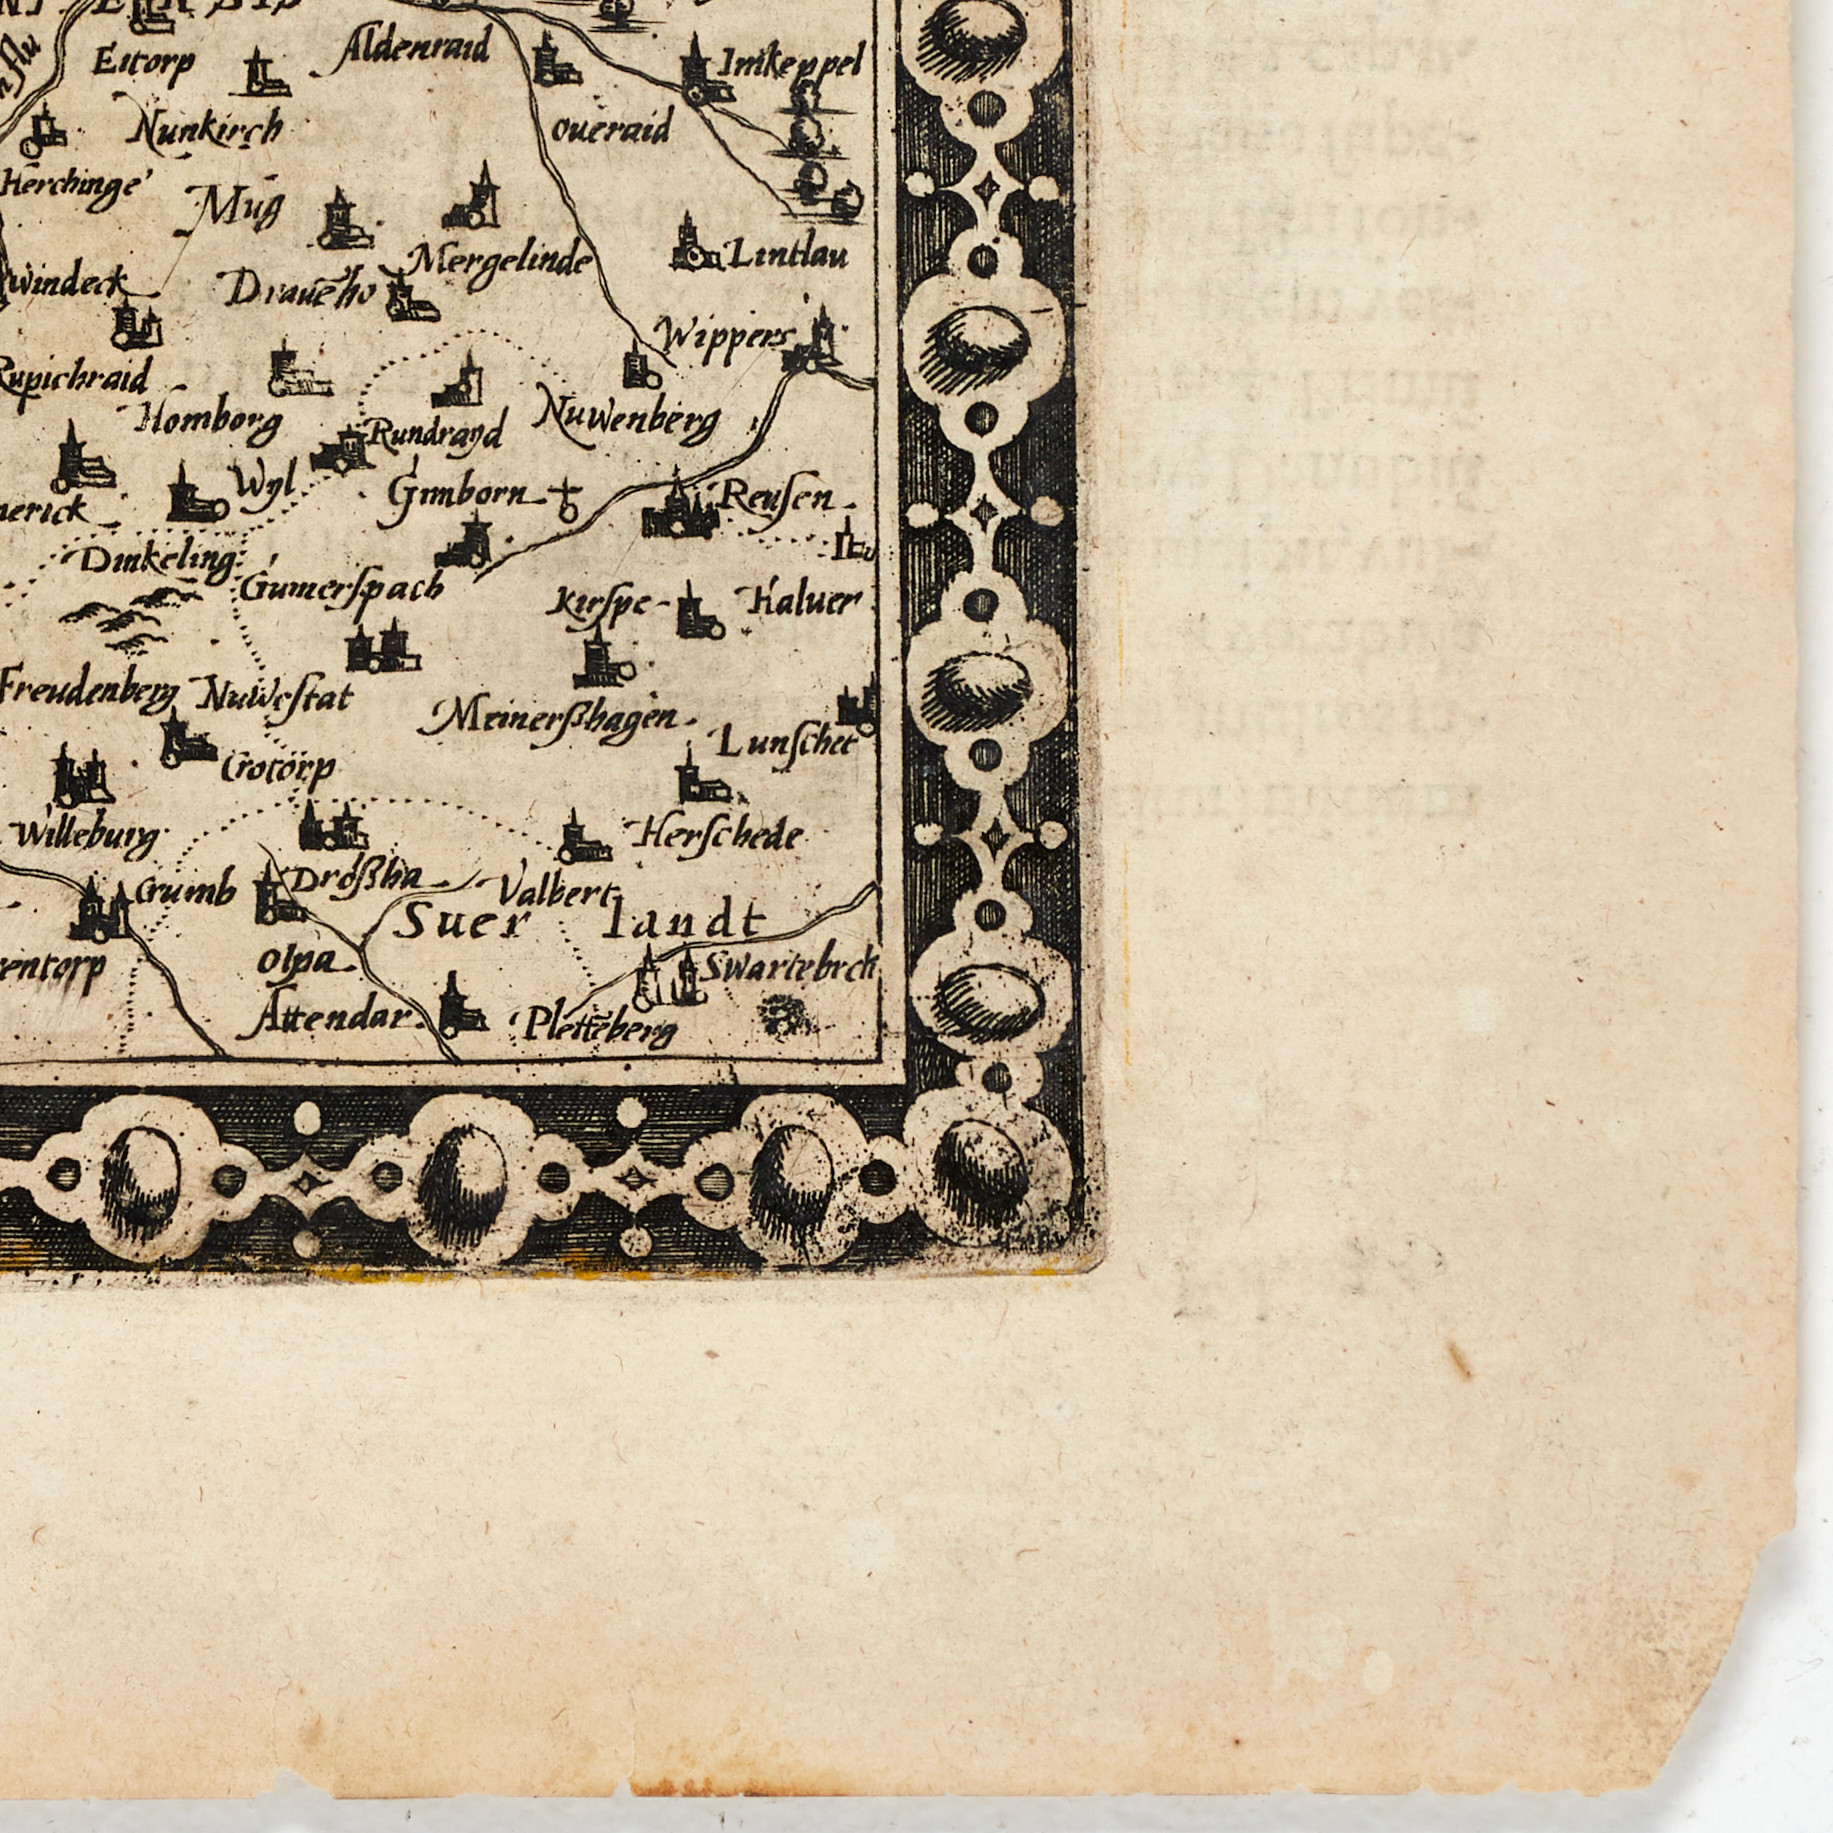 Eitorp
Aldenraid
Imkeppel
Nunkirch
oueraid
Herchinge'
Mūg
Mergelinde
Lintlau
Windeck
Drauēho
Wippers
Rupichraid
Homborg
Rundrayd
Nuwenberg
Wyl
Gimborn
Reuſen
merick
Dinkeling
Gumerſpach
Kirſpe
Haluer
Freudenberg
Nuweſtat
Meinerßhagen
Lunſchet
Crotorp
Willeburg
Herſchede
Crumb
Droßha
Valbert
Suer landt
olpa
Swartebrch
entorp
Attendar
Plettēberg